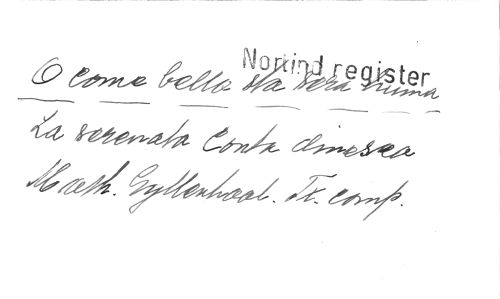 Nortind register
O come bella sta sera numa
La serenata Conta dinesea
Math. Gyllenhaal. Tx. comp.